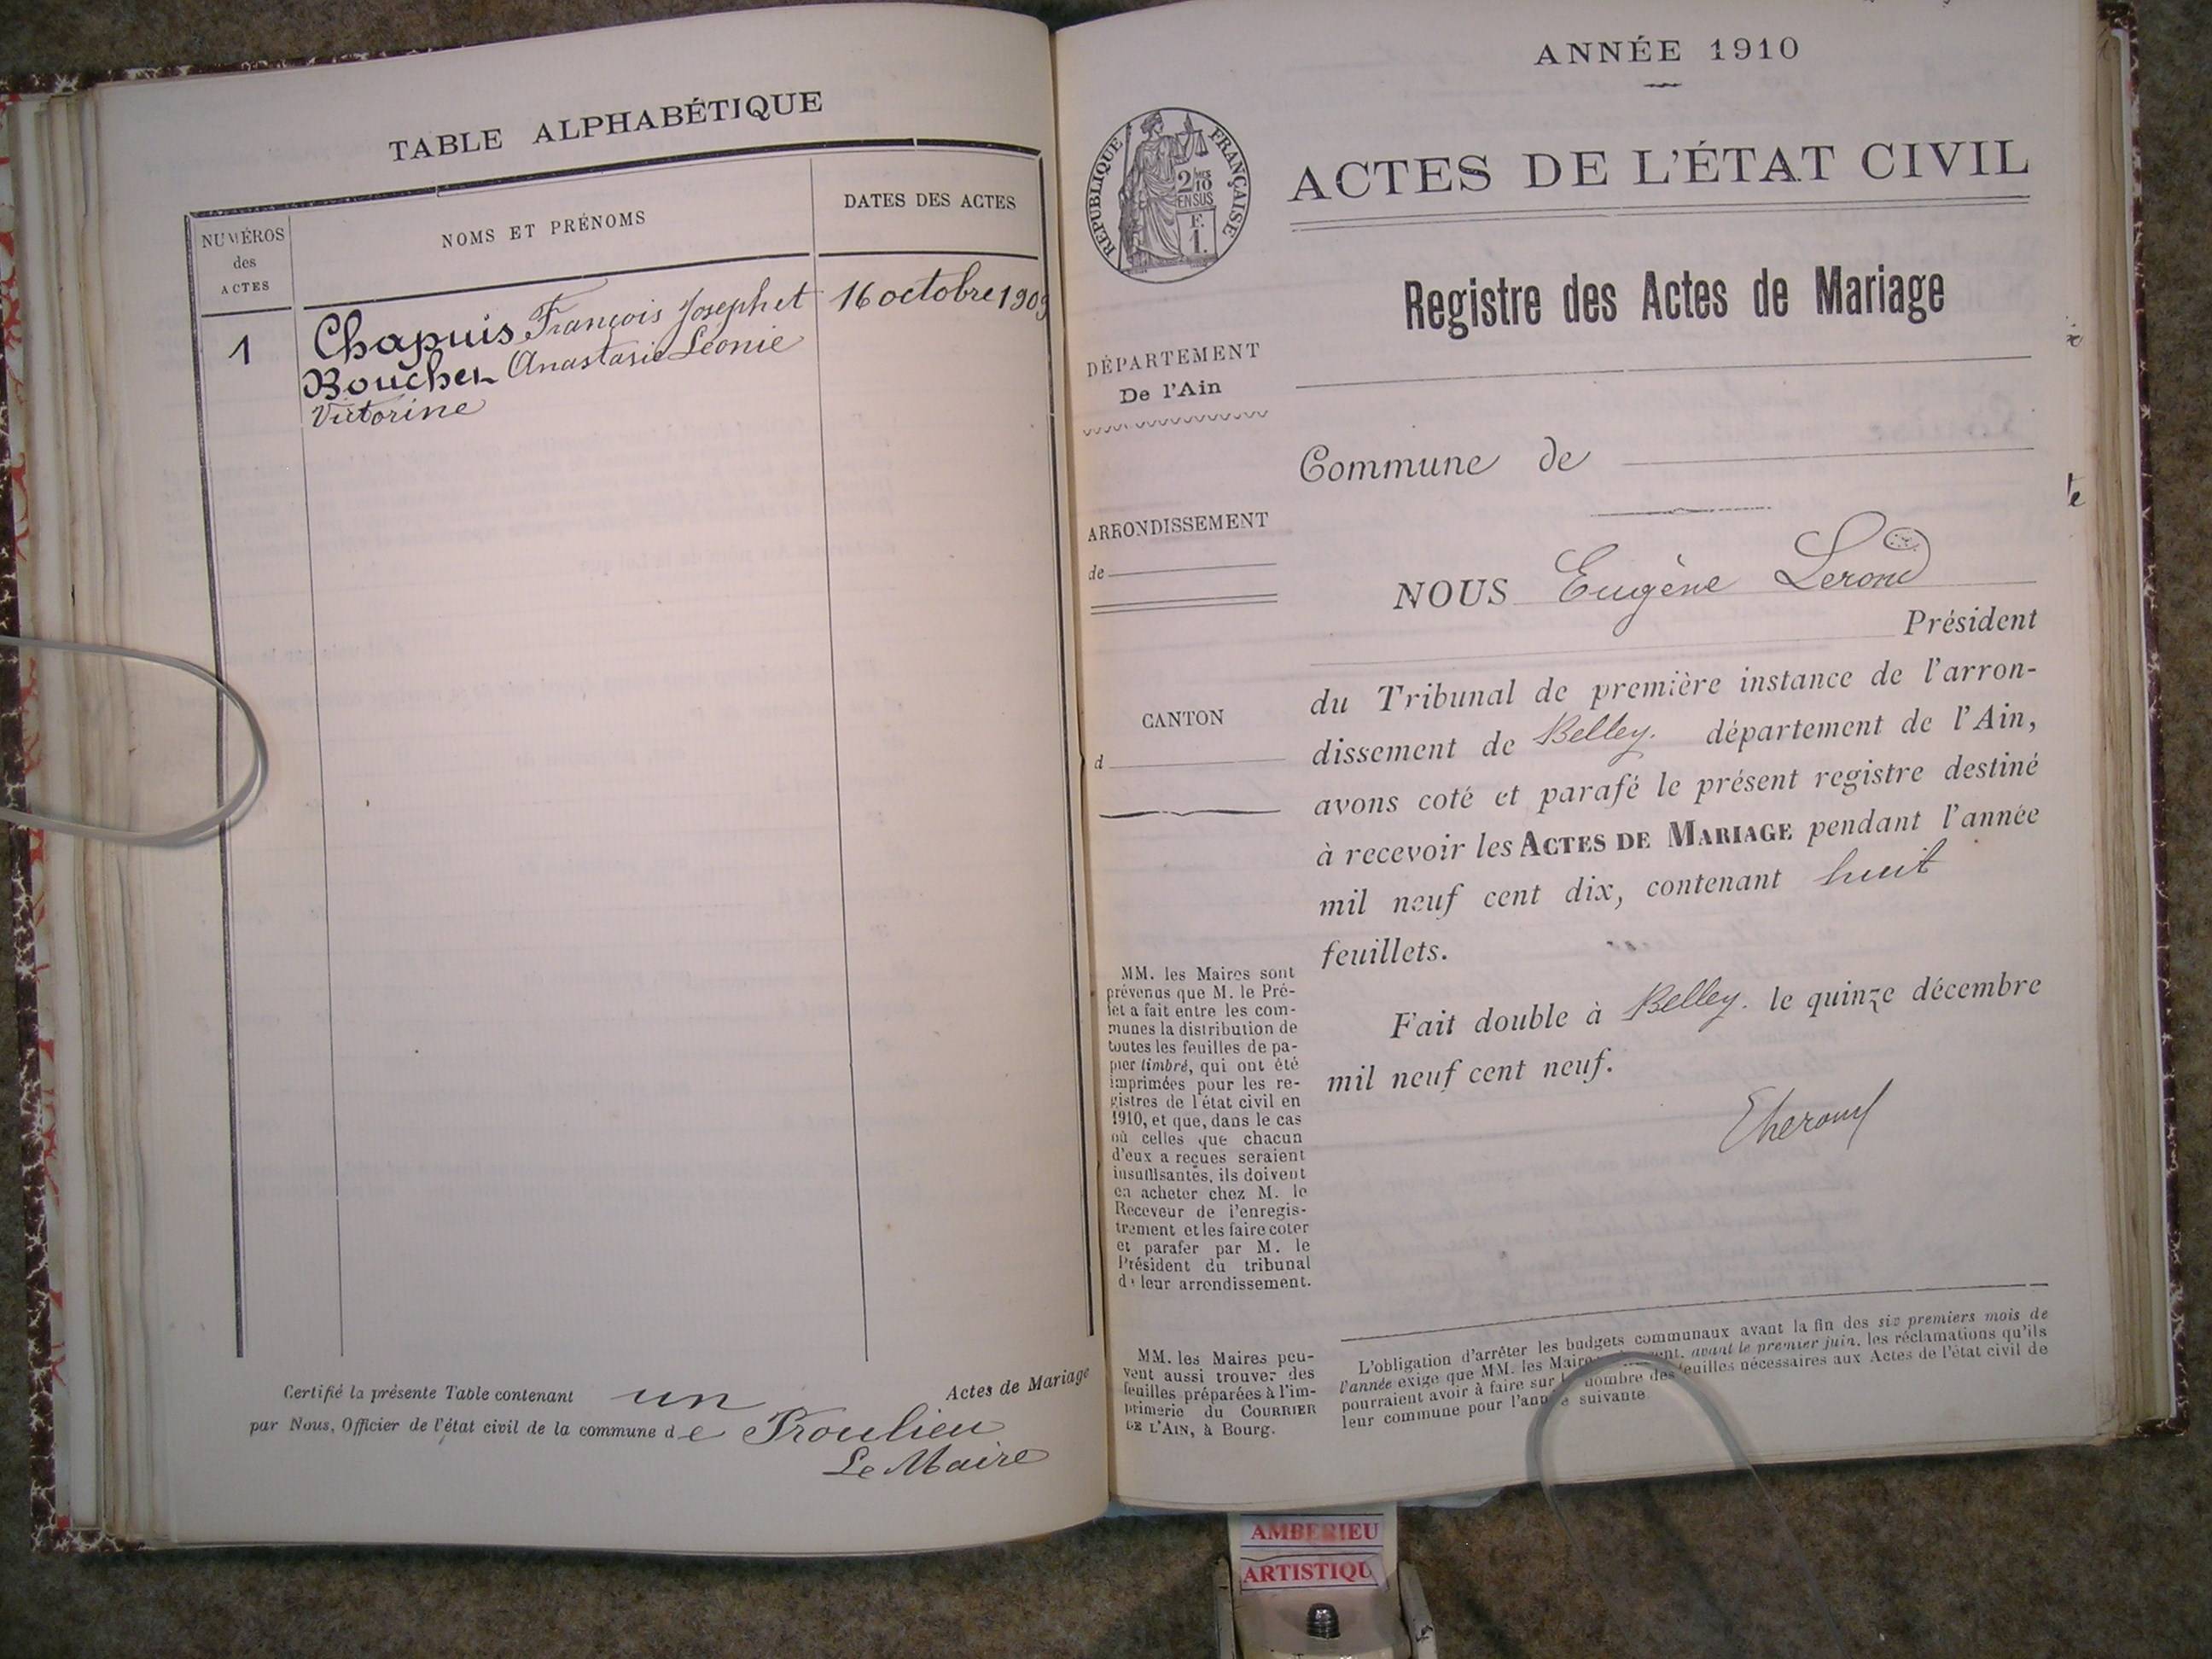 TABLE ALPHABÉTIQUE
NUMÉROS
des
ACTES
NOMS ET PRÉNOMS
DATES DES ACTES
1
Chapuis François Joseph et
Boucher Anastasie Léonie
Victorine
16 octobre 1909
Certifié la présente Table contenant un Actes de Mariage
par Nous, Officier de l'état civil de la commune de Proulieu
Le Maire
ANNÉE 1910
RÉPUBLIQUE FRANÇAISE
2/10
EN SUS
F.
1.
ACTES DE L'ÉTAT CIVIL
Registre des Actes de Mariage
DÉPARTEMENT
De l'Ain
ARRONDISSEMENT
de
CANTON
d
Commune de
NOUS Eugène Lerond
Président
du Tribunal de première instance de l'arron-
dissement de Belley. département de l'Ain,
avons coté et parafé le présent registre destiné
à recevoir les ACTES DE MARIAGE pendant l'année
mil neuf cent dix, contenant huit
feuillets.
Fait double à Belley. le quinze décembre
mil neuf cent neuf.
MM. les Maires sont
prévenus que M. le Pré-
fet a fait entre les com-
munes la distribution de
toutes les feuilles de pa-
pier timbré, qui ont été
imprimées pour les re-
gistres de l'état civil en
1910, et que, dans le cas
où celles que chacun
d'eux a reçues seraient
insuffisantes, ils doivent
en acheter chez M. le
Receveur de l'enregis-
trement et les faire coter
et parafer par M. le
Président du tribunal
de leur arrondissement.
MM. les Maires peu-
vent aussi trouver des
feuilles préparées à l'im-
primerie du COURRIER
DE L'AIN, à Bourg.
L'obligation d'arrêter les budgets communaux avant la fin des six premiers mois de
l'année exige que MM. les Maires avant le premier juin, les réclamations qu'ils
pourraient avoir à faire sur le nombre des feuilles nécessaires aux Actes de l'état civil de
leur commune pour l'année suivante
AMBERIEU
ARTISTIQU